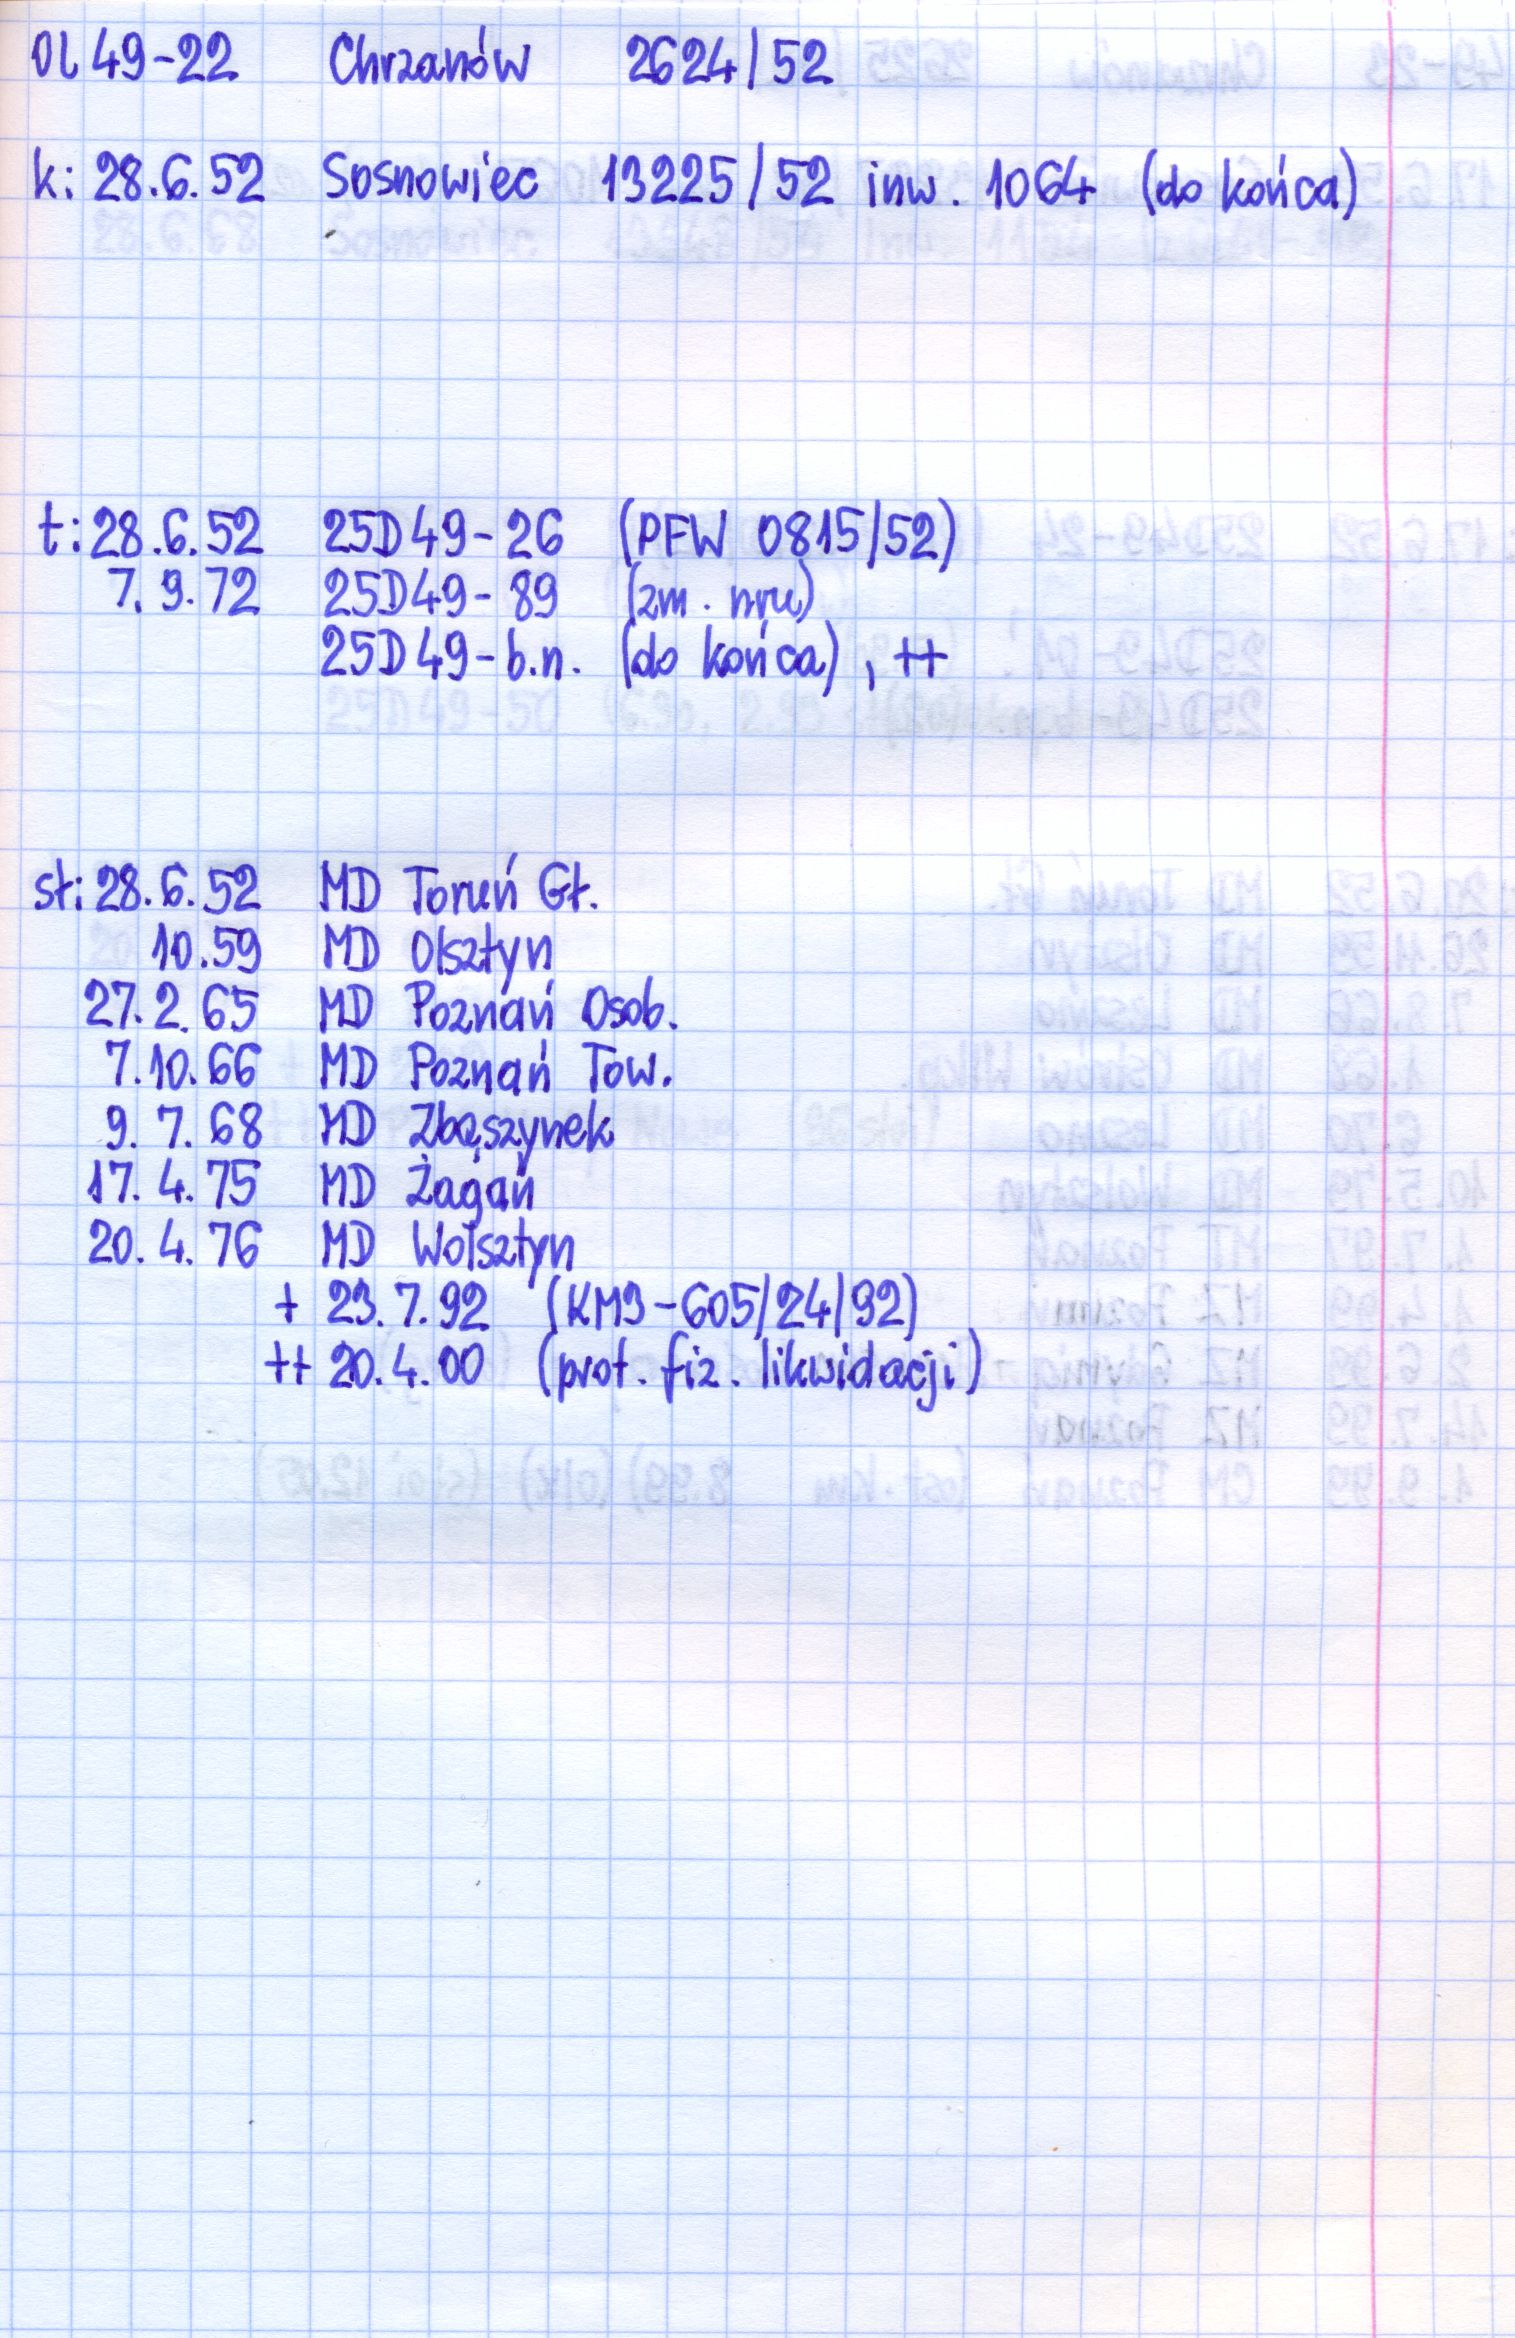 Ol 49-22 Chrzanów 2624/52
k: 28.6.52 Sosnowiec 13225/52 inw. 1064 (do końca)
t: 28.6.52 25D49-26 (PFW 0815/52)
7.9.72 25D49-89 (zm. nru)
25D49-b.n. (do końca), ++
sł: 28.6.52 MD Toruń Gł.
10.59 MD Olsztyn
27.2.65 MD Poznań Osob.
7.10.66 MD Poznań Tow.
9.7.68 MD Zbąszynek
17.4.75 MD Żagań
20.4.76 MD Wolsztyn
+ 23.7.92 (KM9-605/24/92)
++ 20.4.00 (prot. fiz. likwidacji)